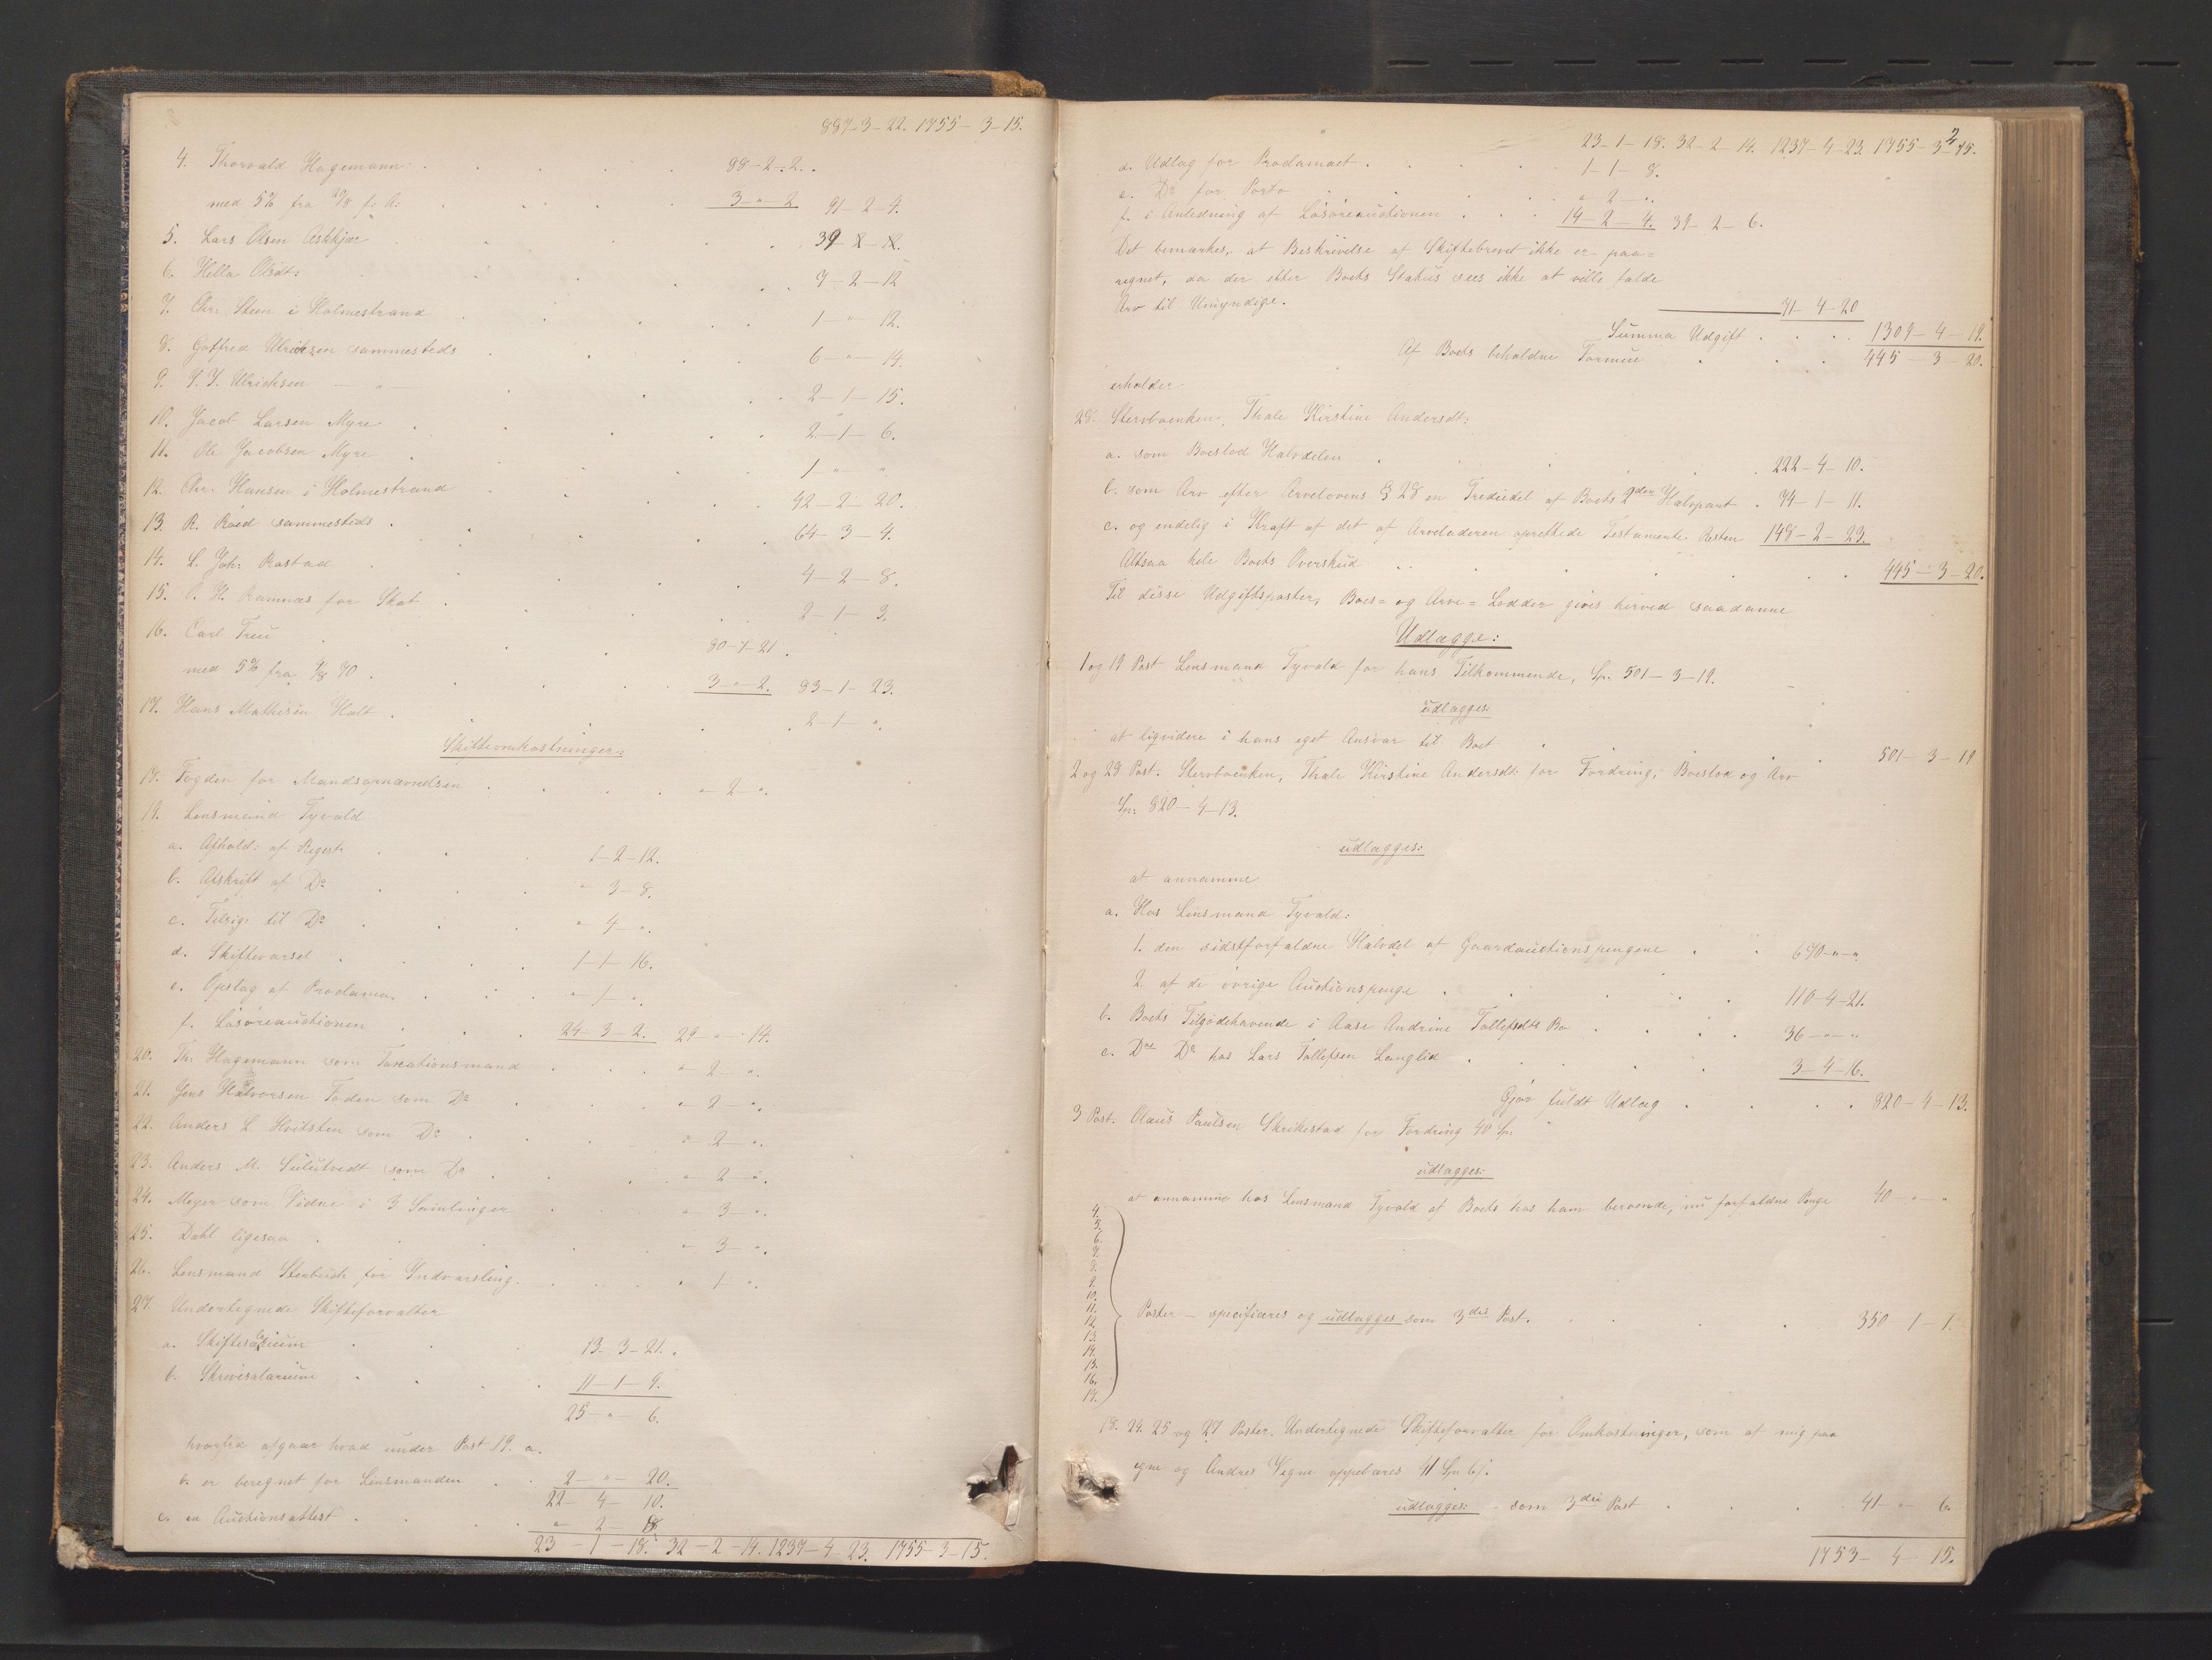 887-3-22. 1755-3-15.
4. Thorvald Hagemann . . . . 88-2-2.
med 5% fra 20/8 f: A: . . . . 3-"-2 91-2-4.
5. Lars Olsen Askkjær . . . 39-
6. Hella Olsdt: . . . 7-2-12
7. Chr: Steen i Holmestrand . . . 1-"-12.
8. Gotfred Ulrichsen sammesteds . . . 6-"-14.
9. J. J. Ulrichsen -"- . . . 2-1-15.
10. Jacob Larsen Myre . . . 2-1-6.
11. Ole Jacobsen Myre . . . 1-"-"
12. Chr. Hansen i Holmestrand . . . 42-2-20.
13. R. Röed sammesteds . . . 64-3-4.
14. L. Joh: Rastad . . . 4-2-8.
15. P. H. Ramnæs for Skat . . . 2-1-3.
16. Carl Treu . . . 80-1-21.
med 5% fra 9/8 70 . . . 3-"-2. 83-1-23.
17. Hans Mathisen Holt . . . 2-1-".
Skifteomkostninger:
18. Fogden for Mandsopnævnelsen . . . "-2-".
19. Lensmand Tyvold
a. Afhold: af Regestr . . . 1-2-12.
b. Afskrift af Do . . . "-3-8.
c. Tilsig: til Do . . . "-4-".
d. Skiftevarsel . . . 1-1-16.
e. Opslag af Proclama . . . "-1-".
f. Lösöreauctionen . . . 24-3-2. 29-"-14.
20. Th: Hagemann som Taxationsmand . . . "-2-".
21. Jens Halvorsen Foden som Do . . . "-2-".
22. Anders L Hvitsten som Do . . . "-2-".
23. Anders M. Sulutvedt som Do . . . "-2-".
24. Meyer som Vidne i 3 Samlinger . . . "-3-".
25. Dahl ligesaa . . . "-3-".
26. Lensmand Stenbuch for Indvarsling . . . "-1-".
27. Undertegnede Skifteforvalter
a. Skiftesalarium . . . 13-3-21.
b. Skrivesalarium . . . 11-1-9.
25-"-6.
hvorfra afgaar hvad under Post 19. a.
b. er beregnet for Lensmanden . . . 2-"-20.
22-4-10.
c. en Auctionsattest . . . "-2-8
23-1-18. 32-2-14. 1237-4-23. 1755-3-15.
2
23-1-18. 32-2-14. 1237-4-23. 1755-3-15.
d. Udlæg for Proclamaet . . . 1-1-8.
e. Do for Porto . . . "-2-".
f. i Anledning af Lösöreauctionen . . . 14-2-4. 39-2-6.
Det bemærkes, at Beskrivelse af Skiftebrevet ikke er paa=
regnet, da der efter Boets Status sees ikke at ville falde
Arv til Umyndige.
71-4-20
Summa Udgift . . . 1309-4-19.
Af Boets beholdne Formue . . . 445-3-20.
erholder
28. Stervboenken, Thale Kirstine Andersdt:
a. som Boeslod Halvdelen . . . 222-4-10.
b. som Arv efter Arvelovens § 28 en Trediedel af Boets 2den Halvpart . 74-1-11.
c. og endelig i Kraft af det af Arveladeren oprettede Testamente Resten 148-2-23.
Altsaa hele Boets Overskud . . . 445-3-20.
Til disse Udgiftsposter, Boes= og Arve= Lodder gives herved saadanne
Udlægge:
1 og 19 Post Lensmand Tyvold for hans Tilkommende, Sp. 501-3-19.
udlægges:
at liqvidere i hans eget Ansvar til Boet . . . 501-3-19
2 og 28 Post. Stervboenken, Thale Kirstine Andersdt: for Fordring, Boeslod og Arv
Sp: 820-4-13.
udlægges:
at annamme
a. Hos Lensmand Tyvold:
1. den sidstforfaldne Halvdel af Gaardauctionspengene . . 670-"-".
2. af de övrige Auctionspenge . . . 110-4-21.
b. Boets Tilgodehavende i Aase Andrine Tollefsdts Bo . . . 36-"-"
c. Dos Do hos Lars Tollefsen Langlid . . . 3-4-16.
Gjör fuldt Udlæg . . . 820-4-13.
3 Post. Claus Paulsen Skrikestad for Fordring 40 Sp:
udlægges:
at annamme hos Lensmand Tyvold af Boets hos ham beroende, nu forfaldne Penge 40-"-"
4.
5.
6.
7.
8.
9.
10.
11.
12.
13.
14.
15.
16.
17.
Poster - specificeres og udlægges som 3die Post . . . 350-1-1.
18. 24. 25 og 27 Poster. Undertegnede Skifteforvalter for Omkostninger, som af mig paa
egne og Andres Vegne oppebæres 41 Sp 6/.
udlægges: som 3die Post . . . 41-"-6.
1753-4-15.